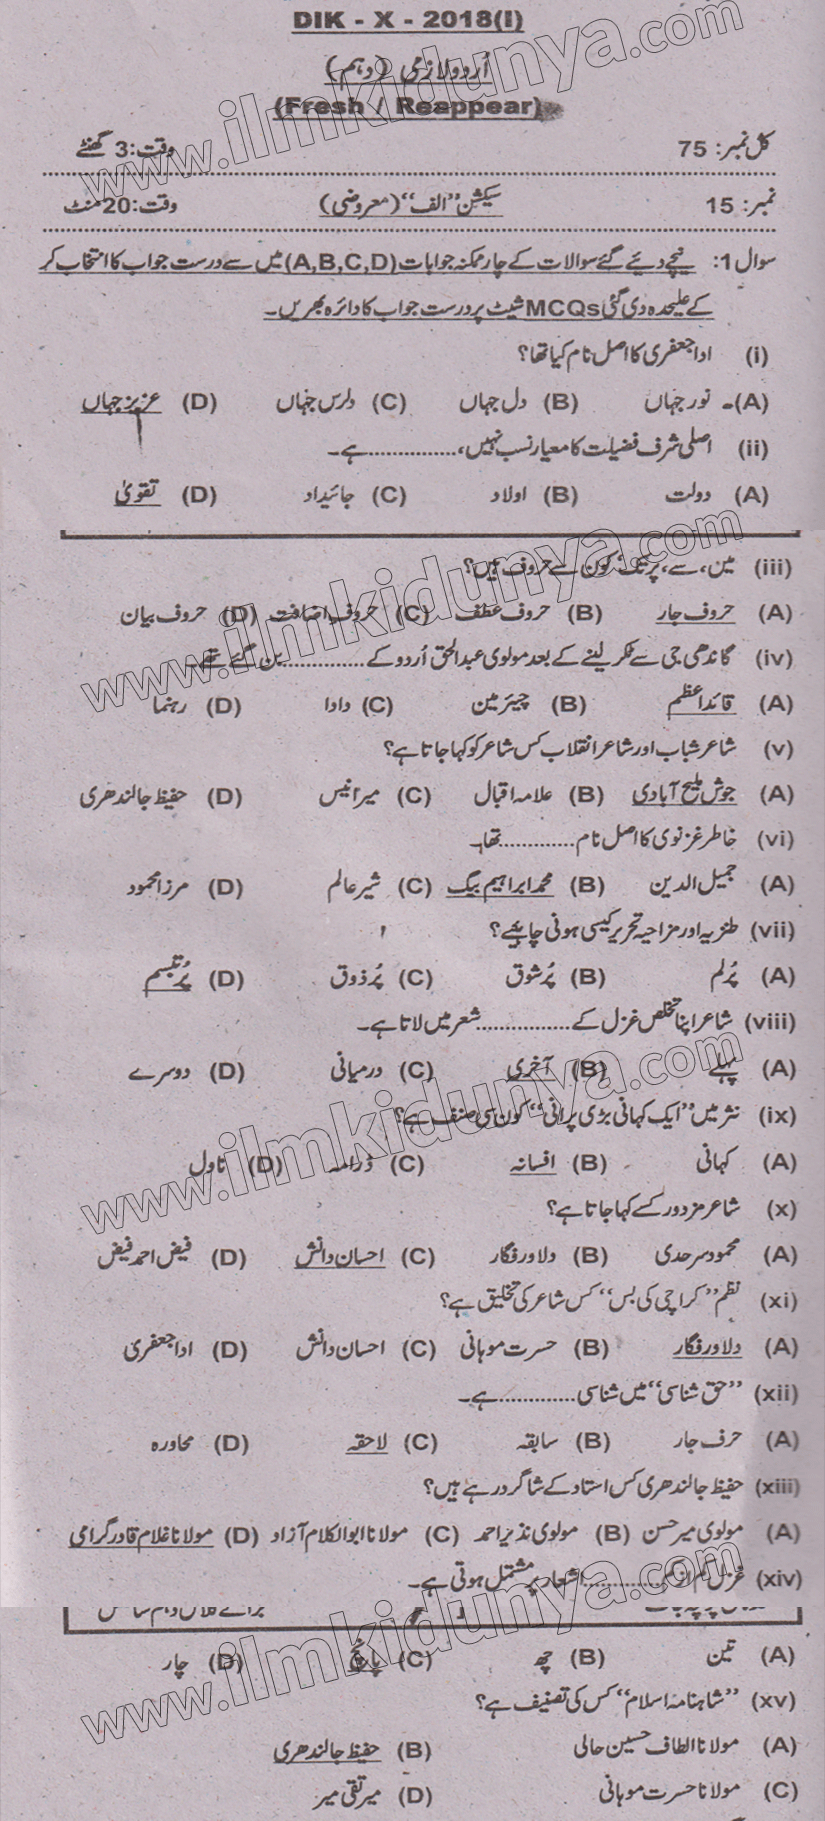 DIK - X - 2018(I)
اُردو لازمی (دہم)
(Fresh / Reappear)
کل نمبر: 75 وقت: 3 گھنٹے
نمبر: 15 سیکشن ”الف“ (معروضی) وقت: 20 منٹ
سوال 1: نیچے دیئے گئے سوالات کے چار ممکنہ جوابات (A,B,C,D) میں سے درست جواب کا انتخاب کر
کے علیحدہ دی گئی MCQs شیٹ پر درست جواب کا دائرہ بھریں۔
(i) ادا جعفری کا اصل نام کیا تھا؟
(A) نور جہاں (B) دل جہاں (C) دلرس جہاں (D) عزیز جہاں
(ii) اصلی شرف فضیلت کا معیار نسب نہیں، ............... ہے۔
(A) دولت (B) اولاد (C) جائیداد (D) تقویٰ
(iii) میں، سے، پر تک، کون سے حروف ہیں؟
(A) حروف جار (B) حروف عطف (C) حروف اضافت (D) حروف بیان
(iv) گاندھی جی سے ٹکر لینے کے بعد مولوی عبدالحق اُردو کے .............. بن گئے تھے۔
(A) قائداعظم (B) چیئرمین (C) دادا (D) رہنما
(v) شاعر شباب اور شاعر انقلاب کس شاعر کو کہا جاتا ہے؟
(A) جوش ملیح آبادی (B) علامہ اقبال (C) میر انیس (D) حفیظ جالندھری
(vi) خاطر غزنوی کا اصل نام ............. تھا۔
(A) جمیل الدین (B) محمد ابراہیم بیگ (C) شیر عالم (D) مرزا محمود
(vii) طنزیہ اور مزاحیہ تحریر کیسی ہونی چاہیے؟
(A) پُرلم (B) پُرشوق (C) پُرذوق (D) پُرتبسم
(viii) شاعر اپنا تخلص غزل کے ................ شعر میں لاتا ہے۔
(A) پہلے (B) آخری (C) درمیانی (D) دوسرے
(ix) نثر میں ”ایک کہانی بڑی پرانی“ کون سی صنف ہے؟
(A) کہانی (B) افسانہ (C) ڈرامہ (D) ناول
(x) شاعر مزدور کسے کہا جاتا ہے؟
(A) محمود سرحدی (B) دلاور فگار (C) احسان دانش (D) فیض احمد فیض
(xi) نظم ”کراچی کی بس“ کس شاعر کی تخلیق ہے؟
(A) دلاور فگار (B) حسرت موہانی (C) احسان دانش (D) ادا جعفری
(xii) ”حق شناسی“ میں شناسی ............. ہے۔
(A) حرف جار (B) سابقہ (C) لاحقہ (D) محاورہ
(xiii) حفیظ جالندھری کس استاد کے شاگرد رہے ہیں؟
(A) مولوی میر حسن (B) مولوی نذیر احمد (C) مولانا ابوالکلام آزاد (D) مولانا غلام قادر گرامی
(xiv) غزل کم از کم ............. اشعار پر مشتمل ہوتی ہے۔
(A) تین (B) چھ (C) پانچ (D) چار
(xv) ”شاہنامہ اسلام“ کس کی تصنیف ہے؟
(A) مولانا الطاف حسین حالی (B) حفیظ جالندھری
(C) مولانا حسرت موہانی (D) میر تقی میر
www.ilmkidunya.com
www.ilmkidunya.com
www.ilmkidunya.com
www.ilmkidunya.com